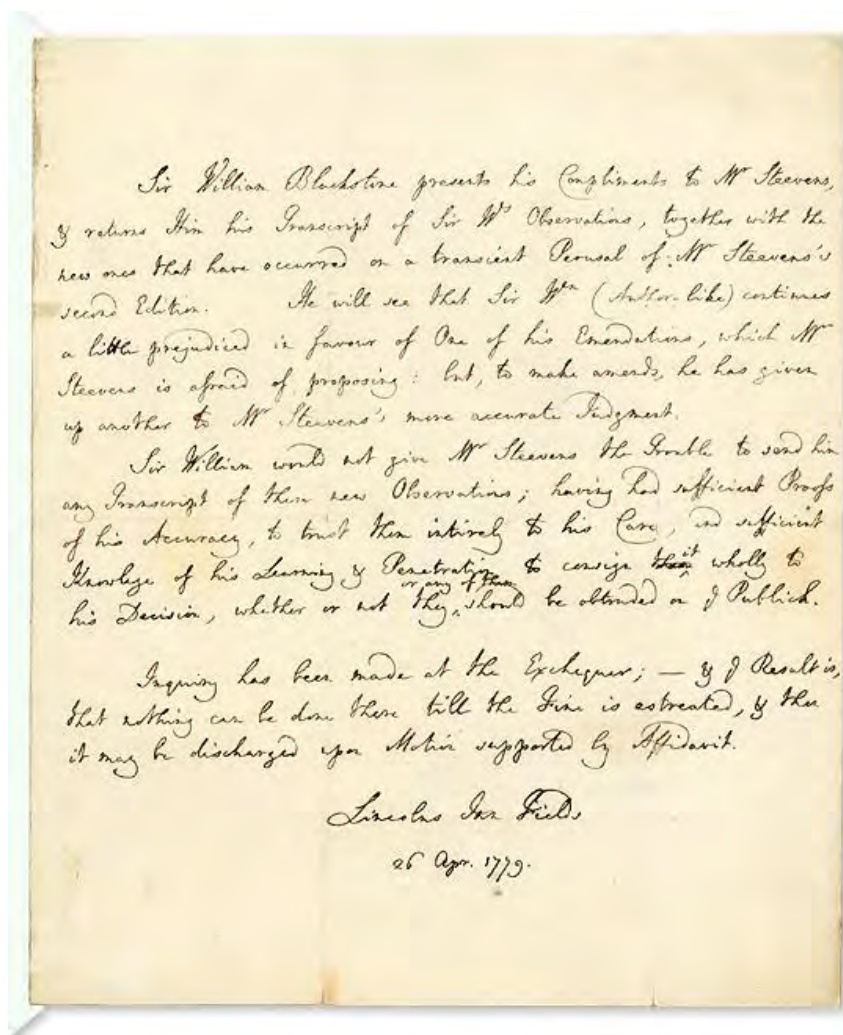 Sir William Blackstone presents his Compliments to Mr Steevens,
& returns Him his Transcript of Sir Wm's Observations, together with the
new ones that have occurred on a transient Perusal of Mr Steevens's
second Edition. He will see that Sir Wm (Author-like) continues
a little prejudiced in favour of One of his Emendations, which Mr
Steevens is afraid of proposing: but, to make amends, he has given
up another to Mr Steevens's more accurate Judgment.
Sir William would not give Mr Steevens the Trouble to send him
any Transcript of these new Observations; having had sufficient Proofs
of his Accuracy, to trust them intirely to his Care, and sufficient
Knowlege of his Learning & Penetration to consign it wholly to
his Decision, whether or not they or any of them should be obtruded on ye Publick.
Inquiry has been made at the Exchequer; — & ye Result is,
that nothing can be done there till the Fine is estreated, & then
it may be discharged upon Motion supported by Affidavit.
Lincolns Inn Fields
26 Apr. 1779.